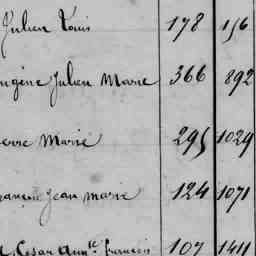 Julien Louis 178 156
Eugène Julien Marie 366 892
Pierre Marie 295 1029
François Jean Marie 124 1071
César Aug.te François 107 1411